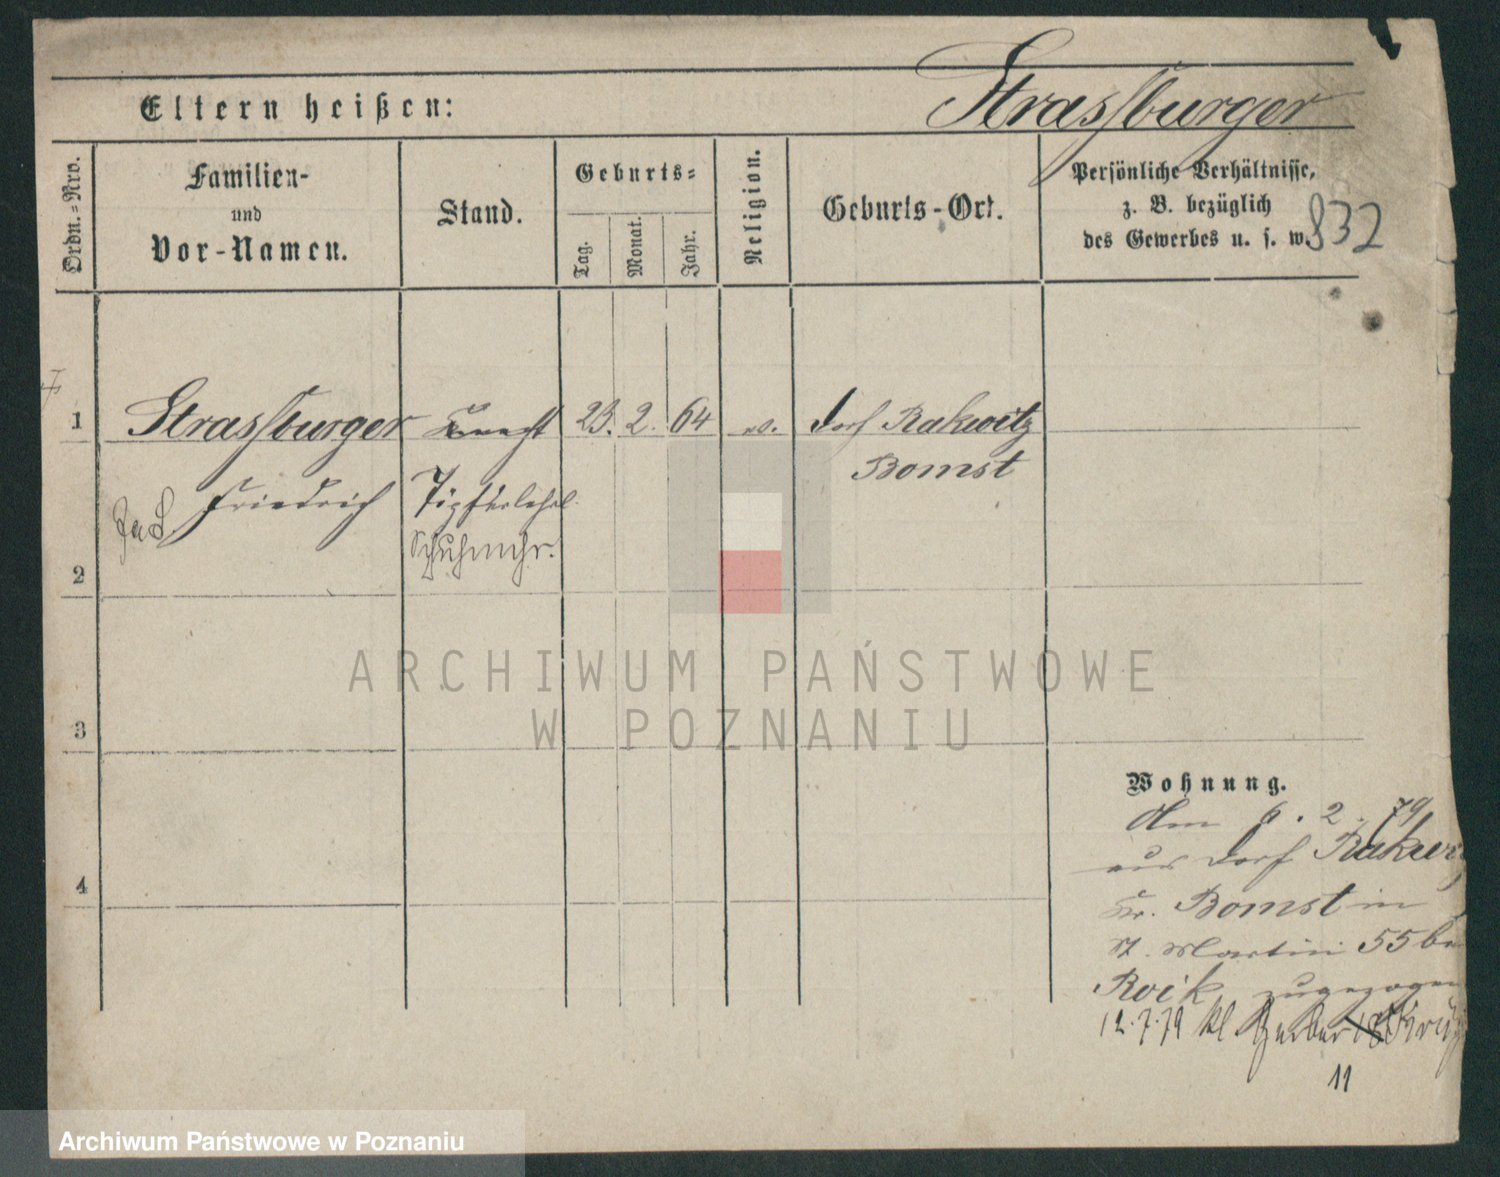 Strassburger
Eltern heißen:
Ordn.-Nro.
Familien-
und
Vor-Namen.
Stand.
Geburts-
Tag.
Monat.
Jahr.
Religion.
Geburts-Ort.
Persönliche Verhältnisse,
z. B. bezüglich
des Gewerbes u. s. w.
832
1 Strassburger Knecht 23. 2. 64 ev. Dorf Rakwitz
Bomst
Friedrich Töpferlehrl.
Schuhmchr.
2
3
4
ARCHIWUM PAŃSTWOWE
W POZNANIU
Wohnung.
Am 6. 2. 79
aus Dorf Rakwi
Kr. Bomst in
St. Martin 55 be
Roik zugezogen
12.7.79 kl Gerber 18
11
Archiwum Państwowe w Poznaniu